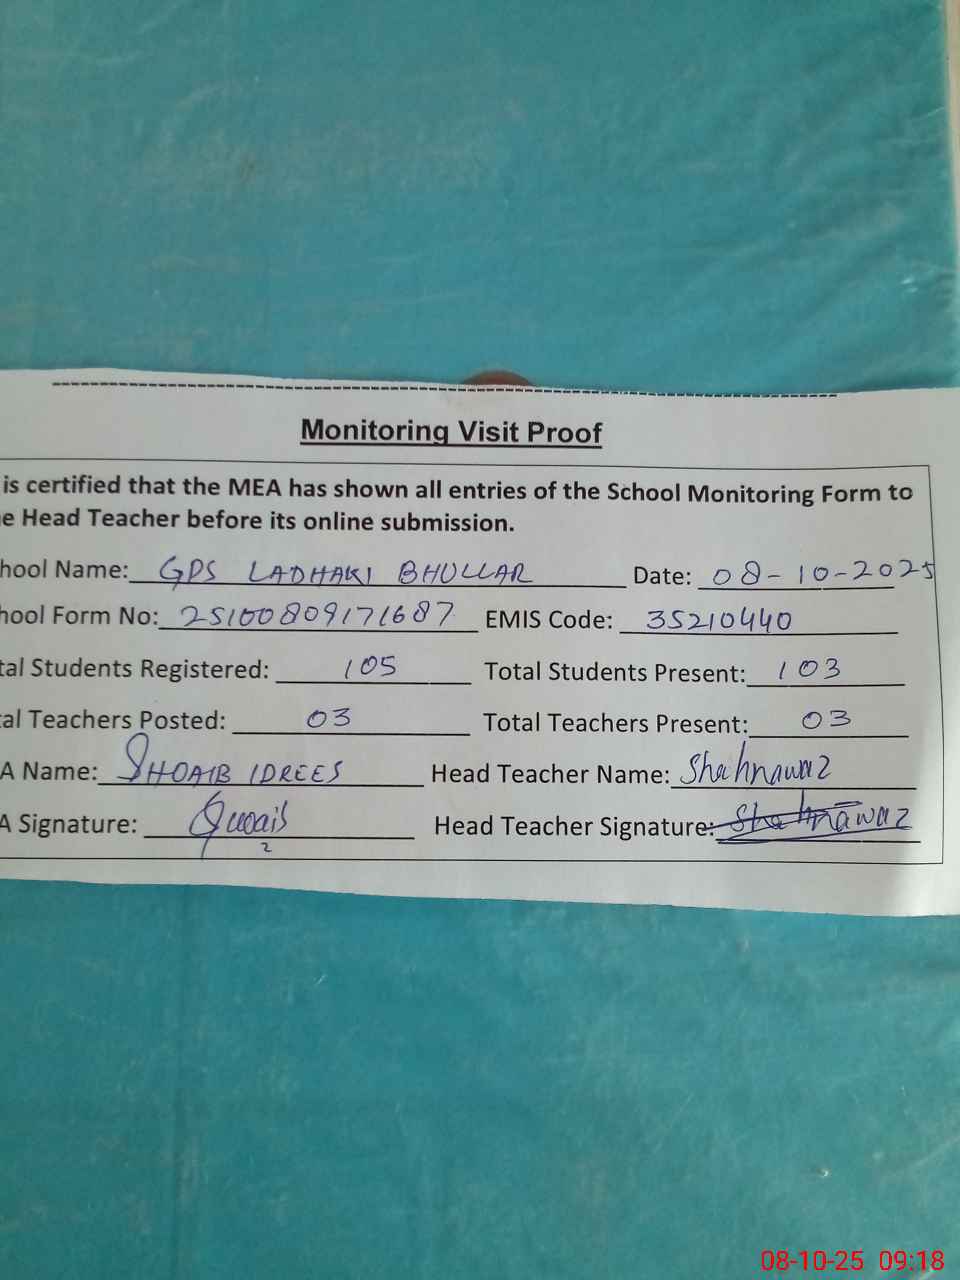 Monitoring Visit Proof
is certified that the MEA has shown all entries of the School Monitoring Form to
e Head Teacher before its online submission.
hool Name: GPS LADHAKI BHULLAR Date: 08-10-2025
hool Form No: 25100809171687 EMIS Code: 35210440
tal Students Registered: 105 Total Students Present: 103
al Teachers Posted: 03 Total Teachers Present: 03
A Name: SHOAIB IDREES Head Teacher Name: Shahnawaz
A Signature: Head Teacher Signature: Shahnawaz
08-10-25 09:18